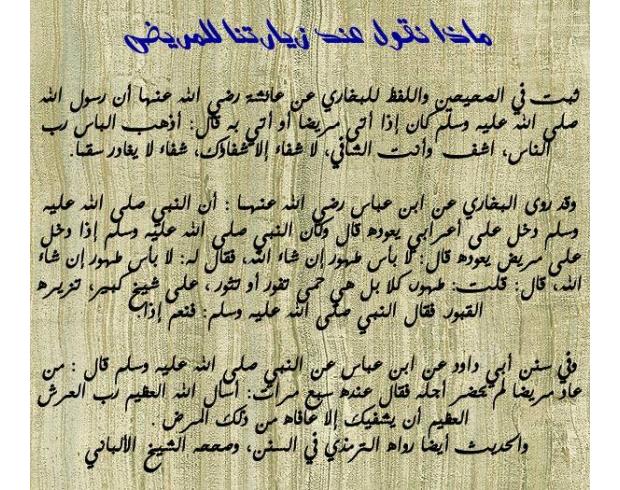 ماذا نقول عند زيارتنا للمريض
ثبت في الصحيحين واللفظ للبخاري عن عائشة رضي الله عنها أن رسول الله
صلى الله عليه وسلم كان إذا أتى مريضا أو أتي به قال: أذهب الباس رب
الناس، اشف وأنت الشافي، لا شفاء إلا شفاؤك، شفاء لا يغادر سقما.
وقد روى البخاري عن ابن عباس رضي الله عنهما : أن النبي صلى الله عليه
وسلم دخل على أعرابي يعوده قال وكان النبي صلى الله عليه وسلم إذا دخل
على مريض يعوده قال: لا بأس طهور إن شاء الله، فقال له: لا بأس طهور إن شاء
الله، قال: قلت: طهور، كلا بل هي حمى تفور أو تثور، على شيخ كبير، تزيره
القبور فقال النبي صلى الله عليه وسلم: فنعم إذاً.
وفي سنن أبي داود عن ابن عباس عن النبي صلى الله عليه وسلم قال : من
عاد مريضا لم يحضر أجله فقال عنده سبع مرات: أسأل الله العظيم رب العرش
العظيم أن يشفيك إلا عافاه من ذلك المرض .
والحديث أيضا رواه الترمذي في السنن، وصححه الشيخ الألباني .